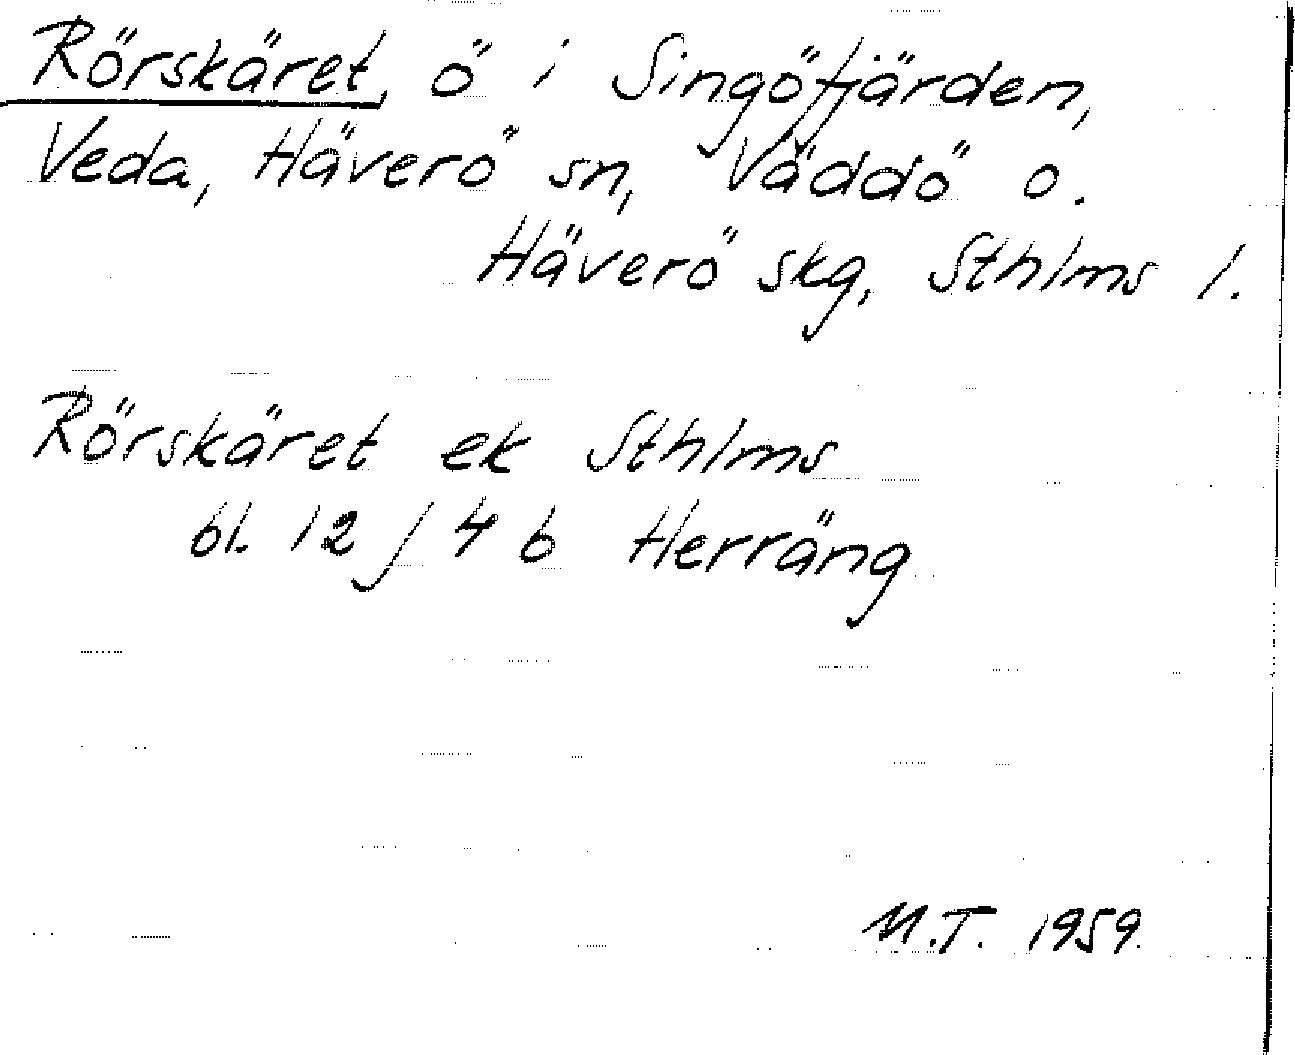 Rörskäret, ö i Singöfjärden,
Veda, Häverö sn, Väddö o.
Häverö skg, Sthlms l.
Rörskäret ek Sthlms
bl. 12 J 4 b Herräng
M.T. 1959.